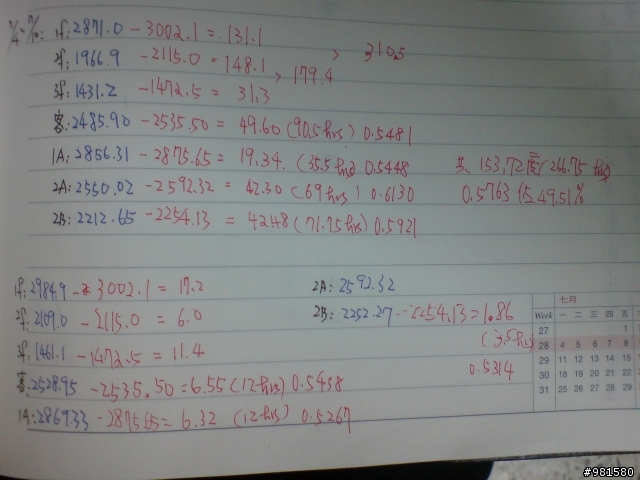 1F: 2871.0 - 3002.1 = 131.1
2F: 1966.9 - 2115.0 = 148.1 > 179.4 > 310.5
3F: 1431.2 - 1472.5 = 31.3
客: 2485.90 - 2535.50 = 49.60 (90.5 hrs) 0.5481
1A: 2856.31 - 2875.65 = 19.34. (35.5 hrs) 0.5448 共 153.72度(266.75 hrs)
2A: 2550.02 - 2592.32 = 42.30 (69 hrs) 0.6130 0.5763 佔49.51%
2B: 2212.65 - 2254.13 = 42.48 (71.75 hrs) 0.5921
1F: 2984.9 - 3002.1 = 17.2 2A: 2592.32
2F: 2109.0 - 2115.0 = 6.0 2B: 2252.27 - 2254.13 = 1.86
3F: 1461.1 - 1472.5 = 11.4 (3.5 hrs)
客: 2528.95 - 2535.50 = 6.55 (12 hrs) 0.5438 0.5314
1A: 2869.33 - 2875.65 = 6.32 (12 hrs) 0.5267
七月
Week 一 二 三 四 五
27 1
28 4 5 6 7 8
29 11 12 13 14 15
30 18 19 20 21 22
31 25 26 27 28 29
#981580